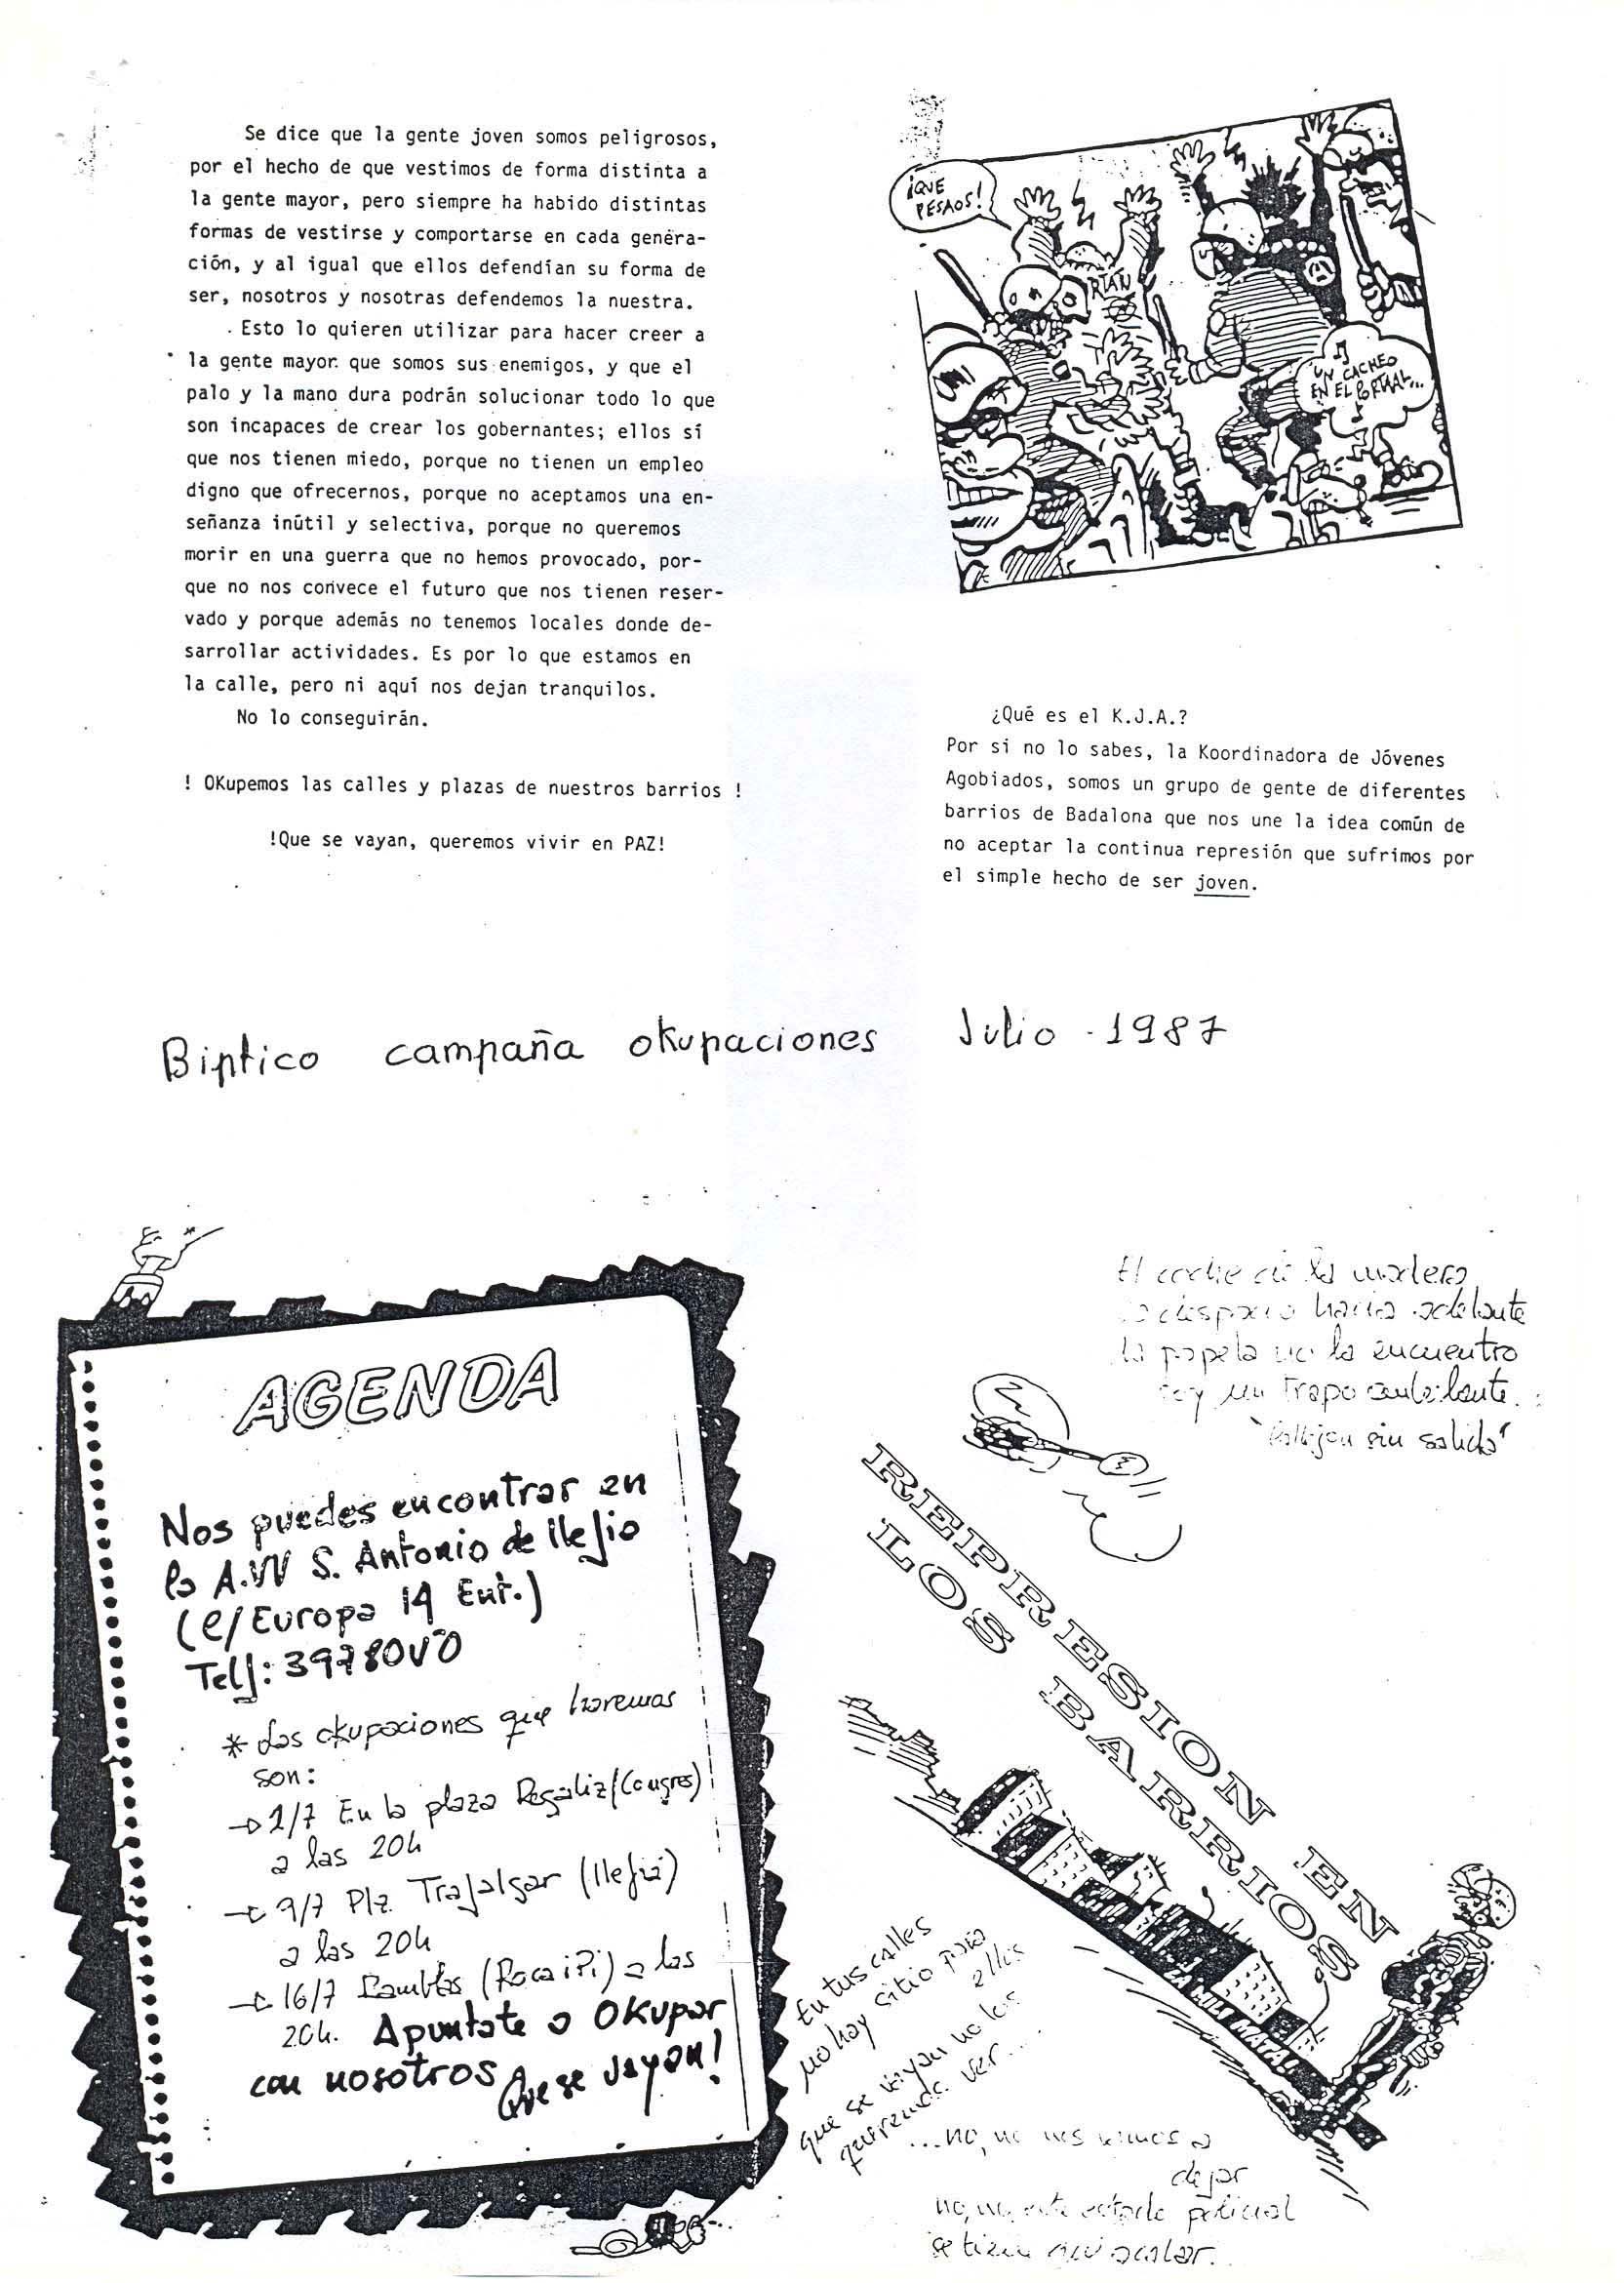 Se dice que la gente joven somos peligrosos,
por el hecho de que vestimos de forma distinta a
la gente mayor, pero siempre ha habido distintas
formas de vestirse y comportarse en cada genera-
ción, y al igual que ellos defendían su forma de
ser, nosotros y nosotras defendemos la nuestra.
Esto lo quieren utilizar para hacer creer a
la gente mayor que somos sus enemigos, y que el
palo y la mano dura podrán solucionar todo lo que
son incapaces de crear los gobernantes; ellos sí
que nos tienen miedo, porque no tienen un empleo
digno que ofrecernos, porque no aceptamos una en-
señanza inútil y selectiva, porque no queremos
morir en una guerra que no hemos provocado, por-
que no nos convece el futuro que nos tienen reser-
vado y porque además no tenemos locales donde de-
sarrollar actividades. Es por lo que estamos en
la calle, pero ni aquí nos dejan tranquilos.
No lo conseguirán.
! OKupemos las calles y plazas de nuestros barrios !
!Que se vayan, queremos vivir en PAZ!
¡QUE
PESAOS!
UN CACHEO
EN EL PORTAAL...
¿Qué es el K.J.A.?
Por si no lo sabes, la Koordinadora de Jóvenes
Agobiados, somos un grupo de gente de diferentes
barrios de Badalona que nos une la idea común de
no aceptar la continua represión que sufrimos por
el simple hecho de ser joven.
Biptico campaña okupaciones Julio - 1987
AGENDA
Nos puedes encontrar en
la A.VV S. Antonio de llefia
(C/ Europa 14 Ent.)
Telf:
* Las okupaciones que haremos
son:
1/7 En la plaza Regaliz (Congres)
a las 20h
9/7 Plz. Trafalgar (llefià)
a las 20h
16/7 Rambla (Roca i Pi) a las
20h. Apuntate a OKupar
con nosotros Que se vayan!
El coche de la madera
despacio hacia adelante
la papela no la encuentro
soy un trapo ambulante.
"Callejon sin salida"
REPRESION EN
LOS BARRIOS
LA MILI MATA!
En tus calles
no hay sitio para
ellos
que se vayan no los
queremos ver...
...no, no nos vamos a
dejar
no, no, este estado policial
se tiene que acabar.